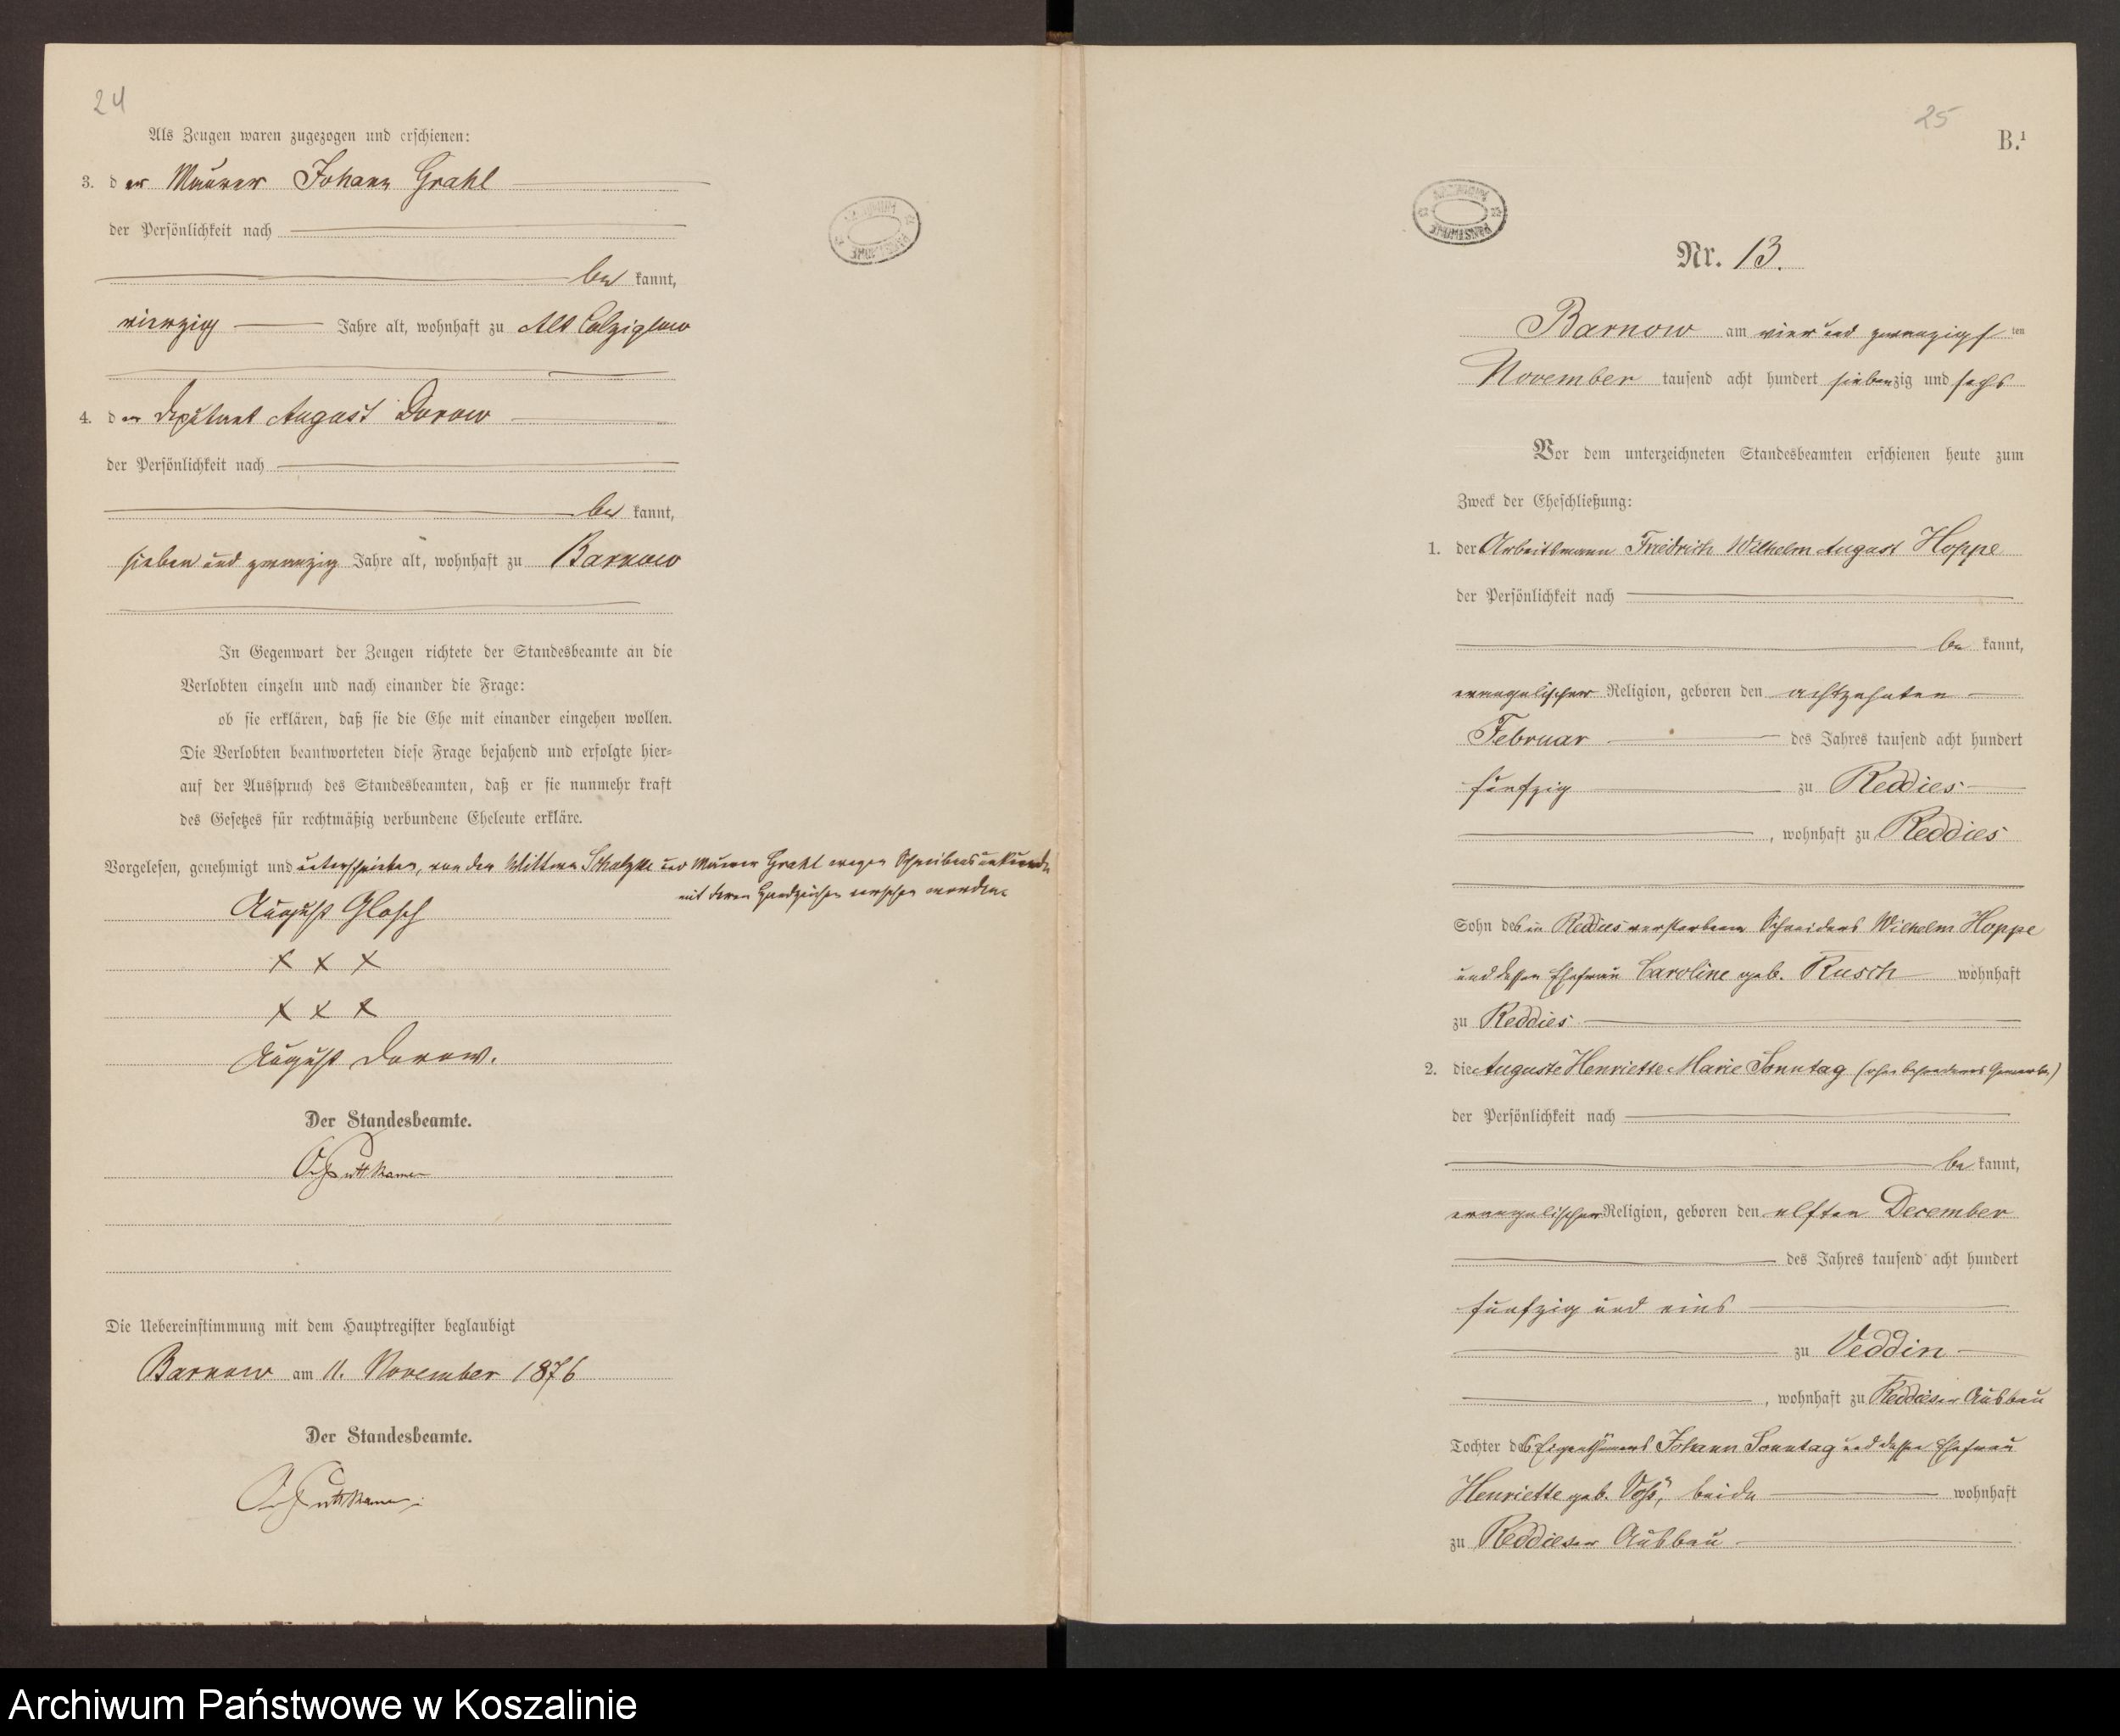 24
Als Zeugen waren zugezogen und erschienen:
3. der Maurer Johann Grahl
der Persönlichkeit nach
be kannt,
vierzig Jahre alt, wohnhaft zu Alt Colziglow
4. der Deputant August Dorow
der Persönlichkeit nach
be kannt,
sieben und zwanzig Jahre alt, wohnhaft zu Barnow
In Gegenwart der Zeugen richtete der Standesbeamte an die
Verlobten einzeln und nach einander die Frage:
ob sie erklären, daß sie die Ehe mit einander eingehen wollen.
Die Verlobten beantworteten diese Frage bejahend und erfolgte hier=
auf der Ausspruch des Standesbeamten, daß er sie nunmehr kraft
des Gesetzes für rechtmäßig verbundene Eheleute erkläre.
Vorgelesen, genehmigt und unterschrieben, von der Wittwe und Maurer Grahl wegen Schreibensunkunde
mit deren Handzeichen versehen worden.
August Glosch
x x x
x x x
August Dorow.
Der Standesbeamte.
Puttkamer
Die Uebereinstimmung mit dem Hauptregister beglaubigt
Barnow am 11. November 1876
Der Standesbeamte.
Puttkamer
25
B.¹
ARCHIWUM PAŃSTWOWE
Nr. 13.
Barnow am vier und zwanzigsten
November tausend acht hundert siebenzig und sechs
Vor dem unterzeichneten Standesbeamten erschienen heute zum
Zweck der Eheschließung:
1. der Arbeitsmann Friedrich Wilhelm August Hoppe
der Persönlichkeit nach
be kannt,
evangelischer Religion, geboren den achtzehnten
Februar des Jahres tausend acht hundert
fünfzig zu Reddies
, wohnhaft zu Reddies
Sohn des in Reddies verstorbenen Schneiders Wilhelm Hoppe
und dessen Ehefrau Caroline geb. Rusch wohnhaft
zu Reddies
2. die Auguste Henriette Marie Sonntag (ohne besonderes Gewerbe)
der Persönlichkeit nach
be kannt,
evangelischer Religion, geboren den elften December
des Jahres tausend acht hundert
fünfzig und eins
zu Veddin
, wohnhaft zu Reddieser Ausbau
Tochter des Eigenthümers Johann Sonntag und dessen Ehefrau
Henriette geb. Voß, beide wohnhaft
zu Reddieser Ausbau
Archiwum Państwowe w Koszalinie